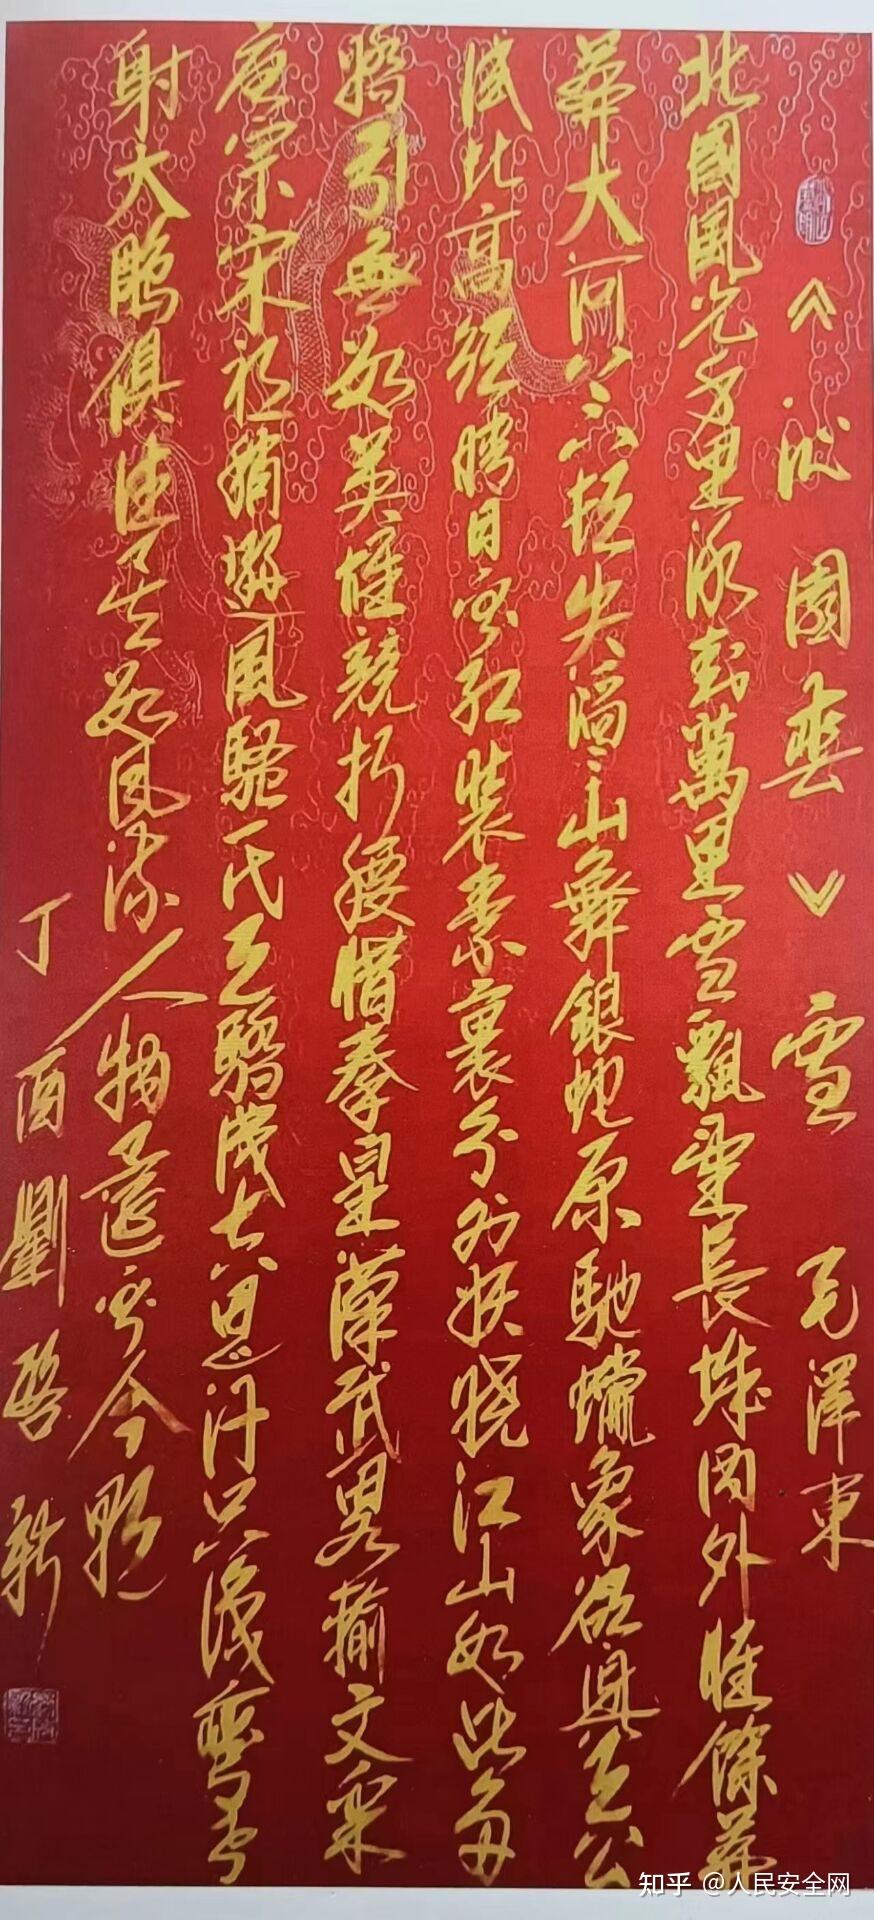 《沁園春》雪 毛澤東
北國風光千里冰封萬里雪飄望長城内外惟餘莽
莽大河上下頓失滔滔山舞銀蛇原馳蠟象欲與天公
試比高須晴日看紅裝素裹分外妖嬈江山如此多
嬌引無數英雄競折腰惜秦皇漢武略輸文采
唐宗宋祖稍遜風騷一代天驕成吉思汗只識彎弓
射大鵰俱往矣數風流人物還看今朝
丁酉劉啓新
知乎 @人民安全网